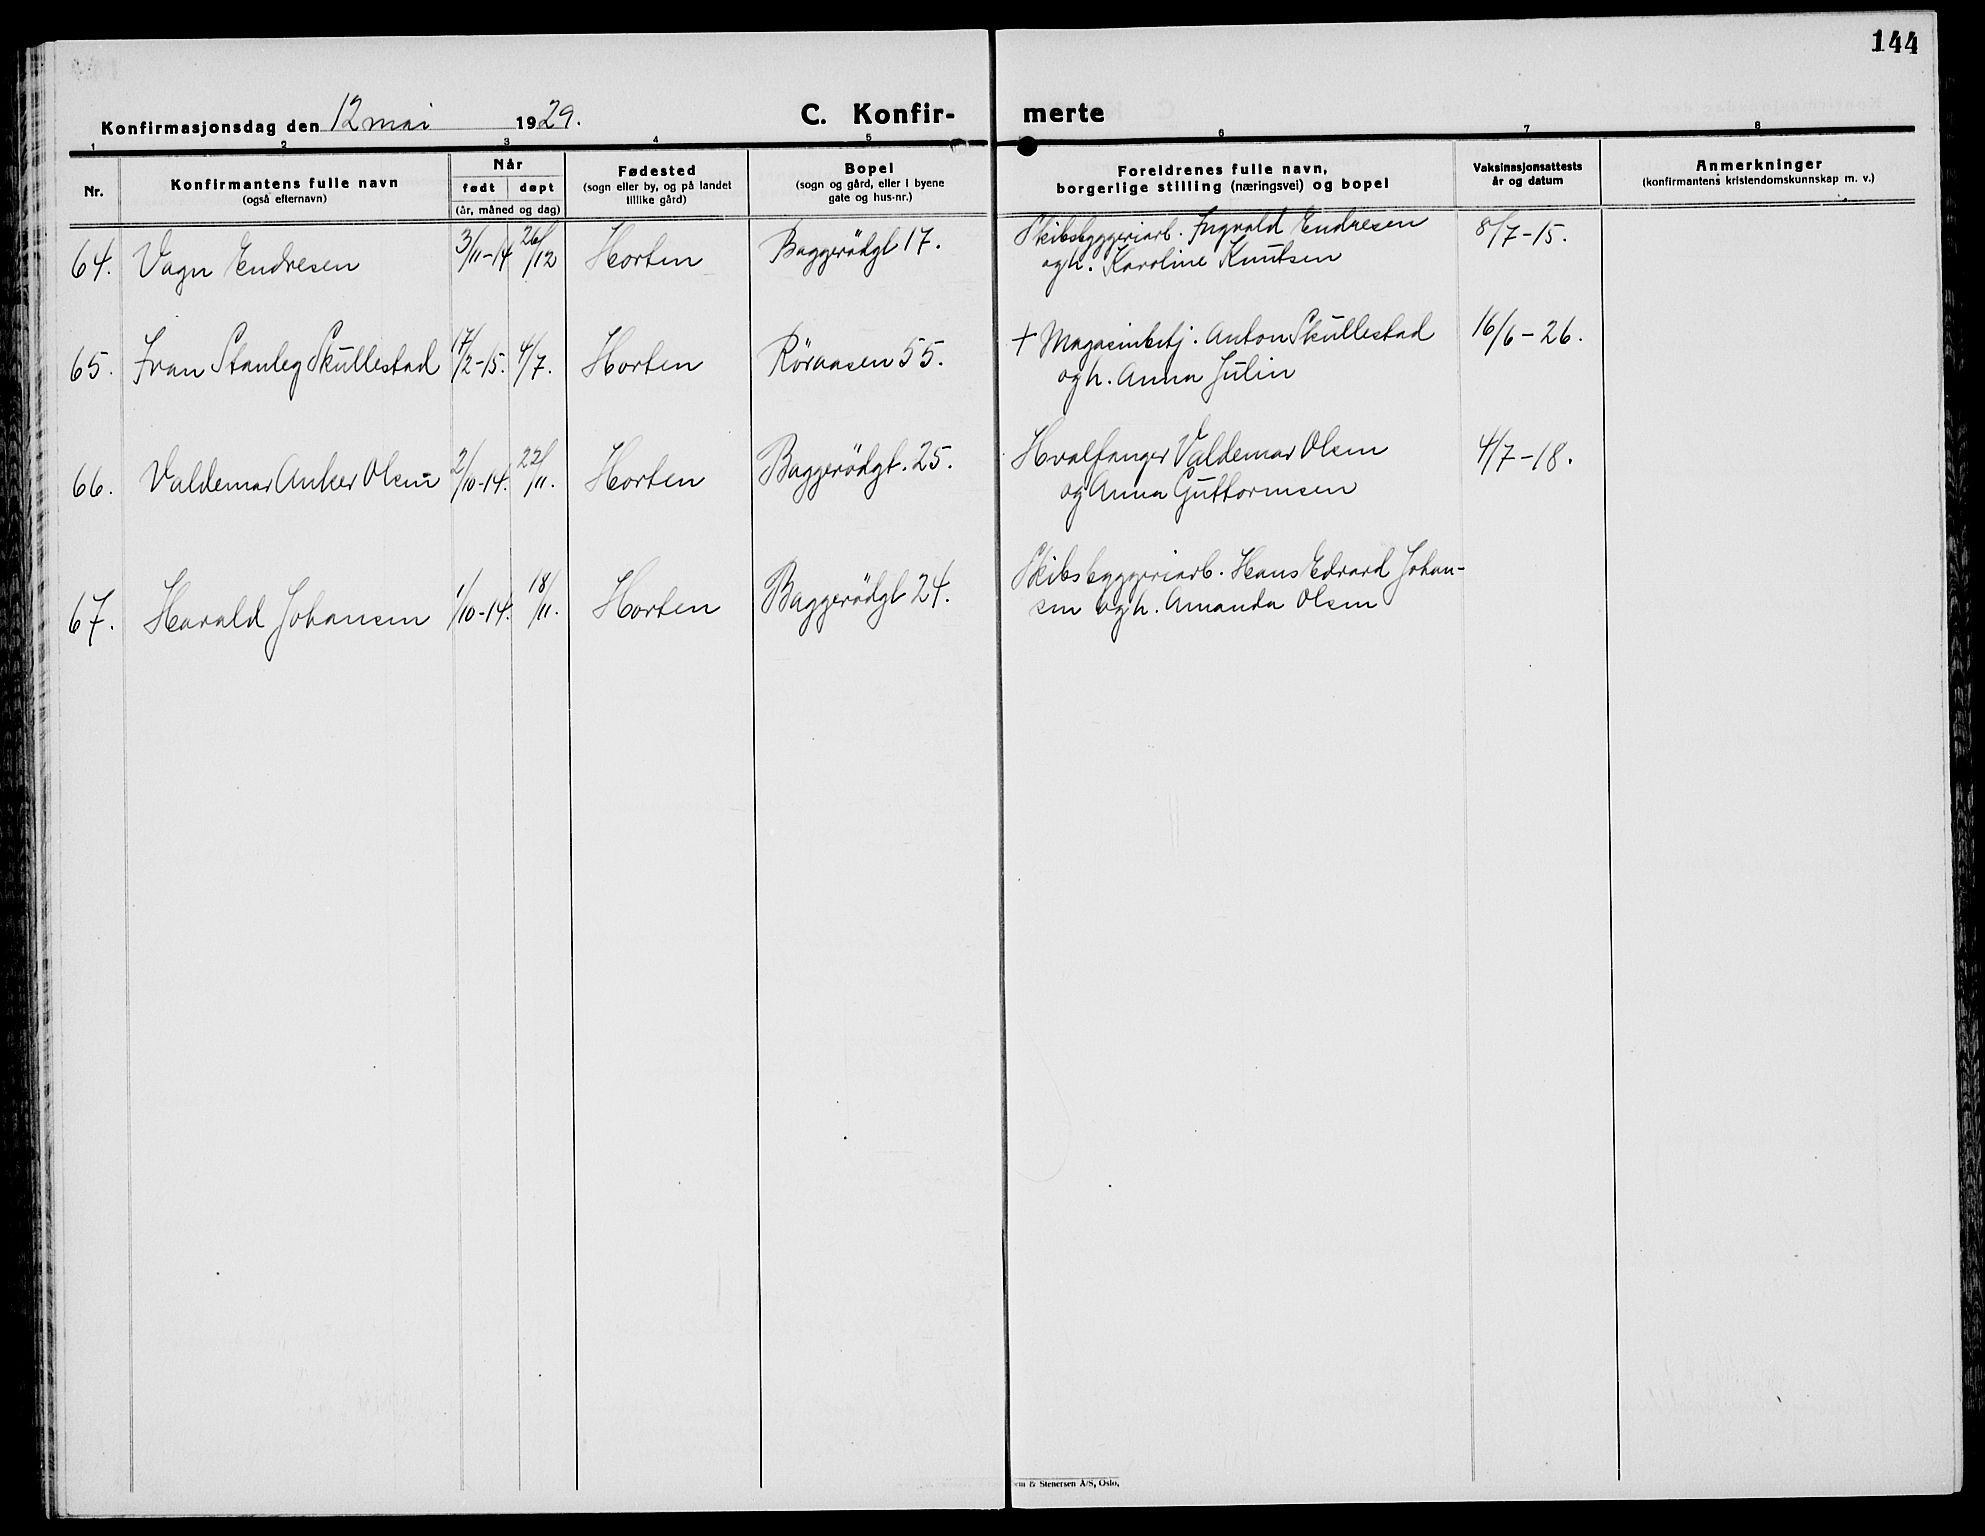 144
Konfirmasjonsdag den 12 mai 1929.
C. Konfir-
merte
1 2 3 4 5 6 7 8
Nr.
Konfirmantens fulle navn
(også efternavn)
Når
født døpt
(år, måned og dag)
Fødested
(sogn eller by, og på landet
tillike gård)
Bopel
(sogn og gård, eller i byene
gate og hus-nr.)
Foreldrenes fulle navn,
borgerlige stilling (næringsvei) og bopel
Vaksinasjonsattests
år og datum
Anmerkninger
(konfirmantens kristendomskunnskap m. v.)
64. Vagn Endresen 3/11-14 26/12 Horten Baggerødgt 17. Skibsbyggeriarb. Ingvald Endresen 8/7-15.
og h. Karoline Knutsen
65. Ivan Stanley Skullestad 17/2-15. 4/7. Horten Røraasen 55. + Magasinbetj. Anton Skullestad 16/6-26.
og h. Anna Julin
66. Valdemar Anker Olsen 2/10-14. 22/11. Horten Baggerødgt. 25. Hvalfanger Valdemar Olsen 4/7-18.
og Anna Guttormsen
67. Harald Johansen 1/10-14. 18/11. Horten Baggerødgt 24. Skibsbyggeriarb. Hans Edvard Johan-
sen og h. Amanda Olsen
& Stenersen A/S, Oslo.